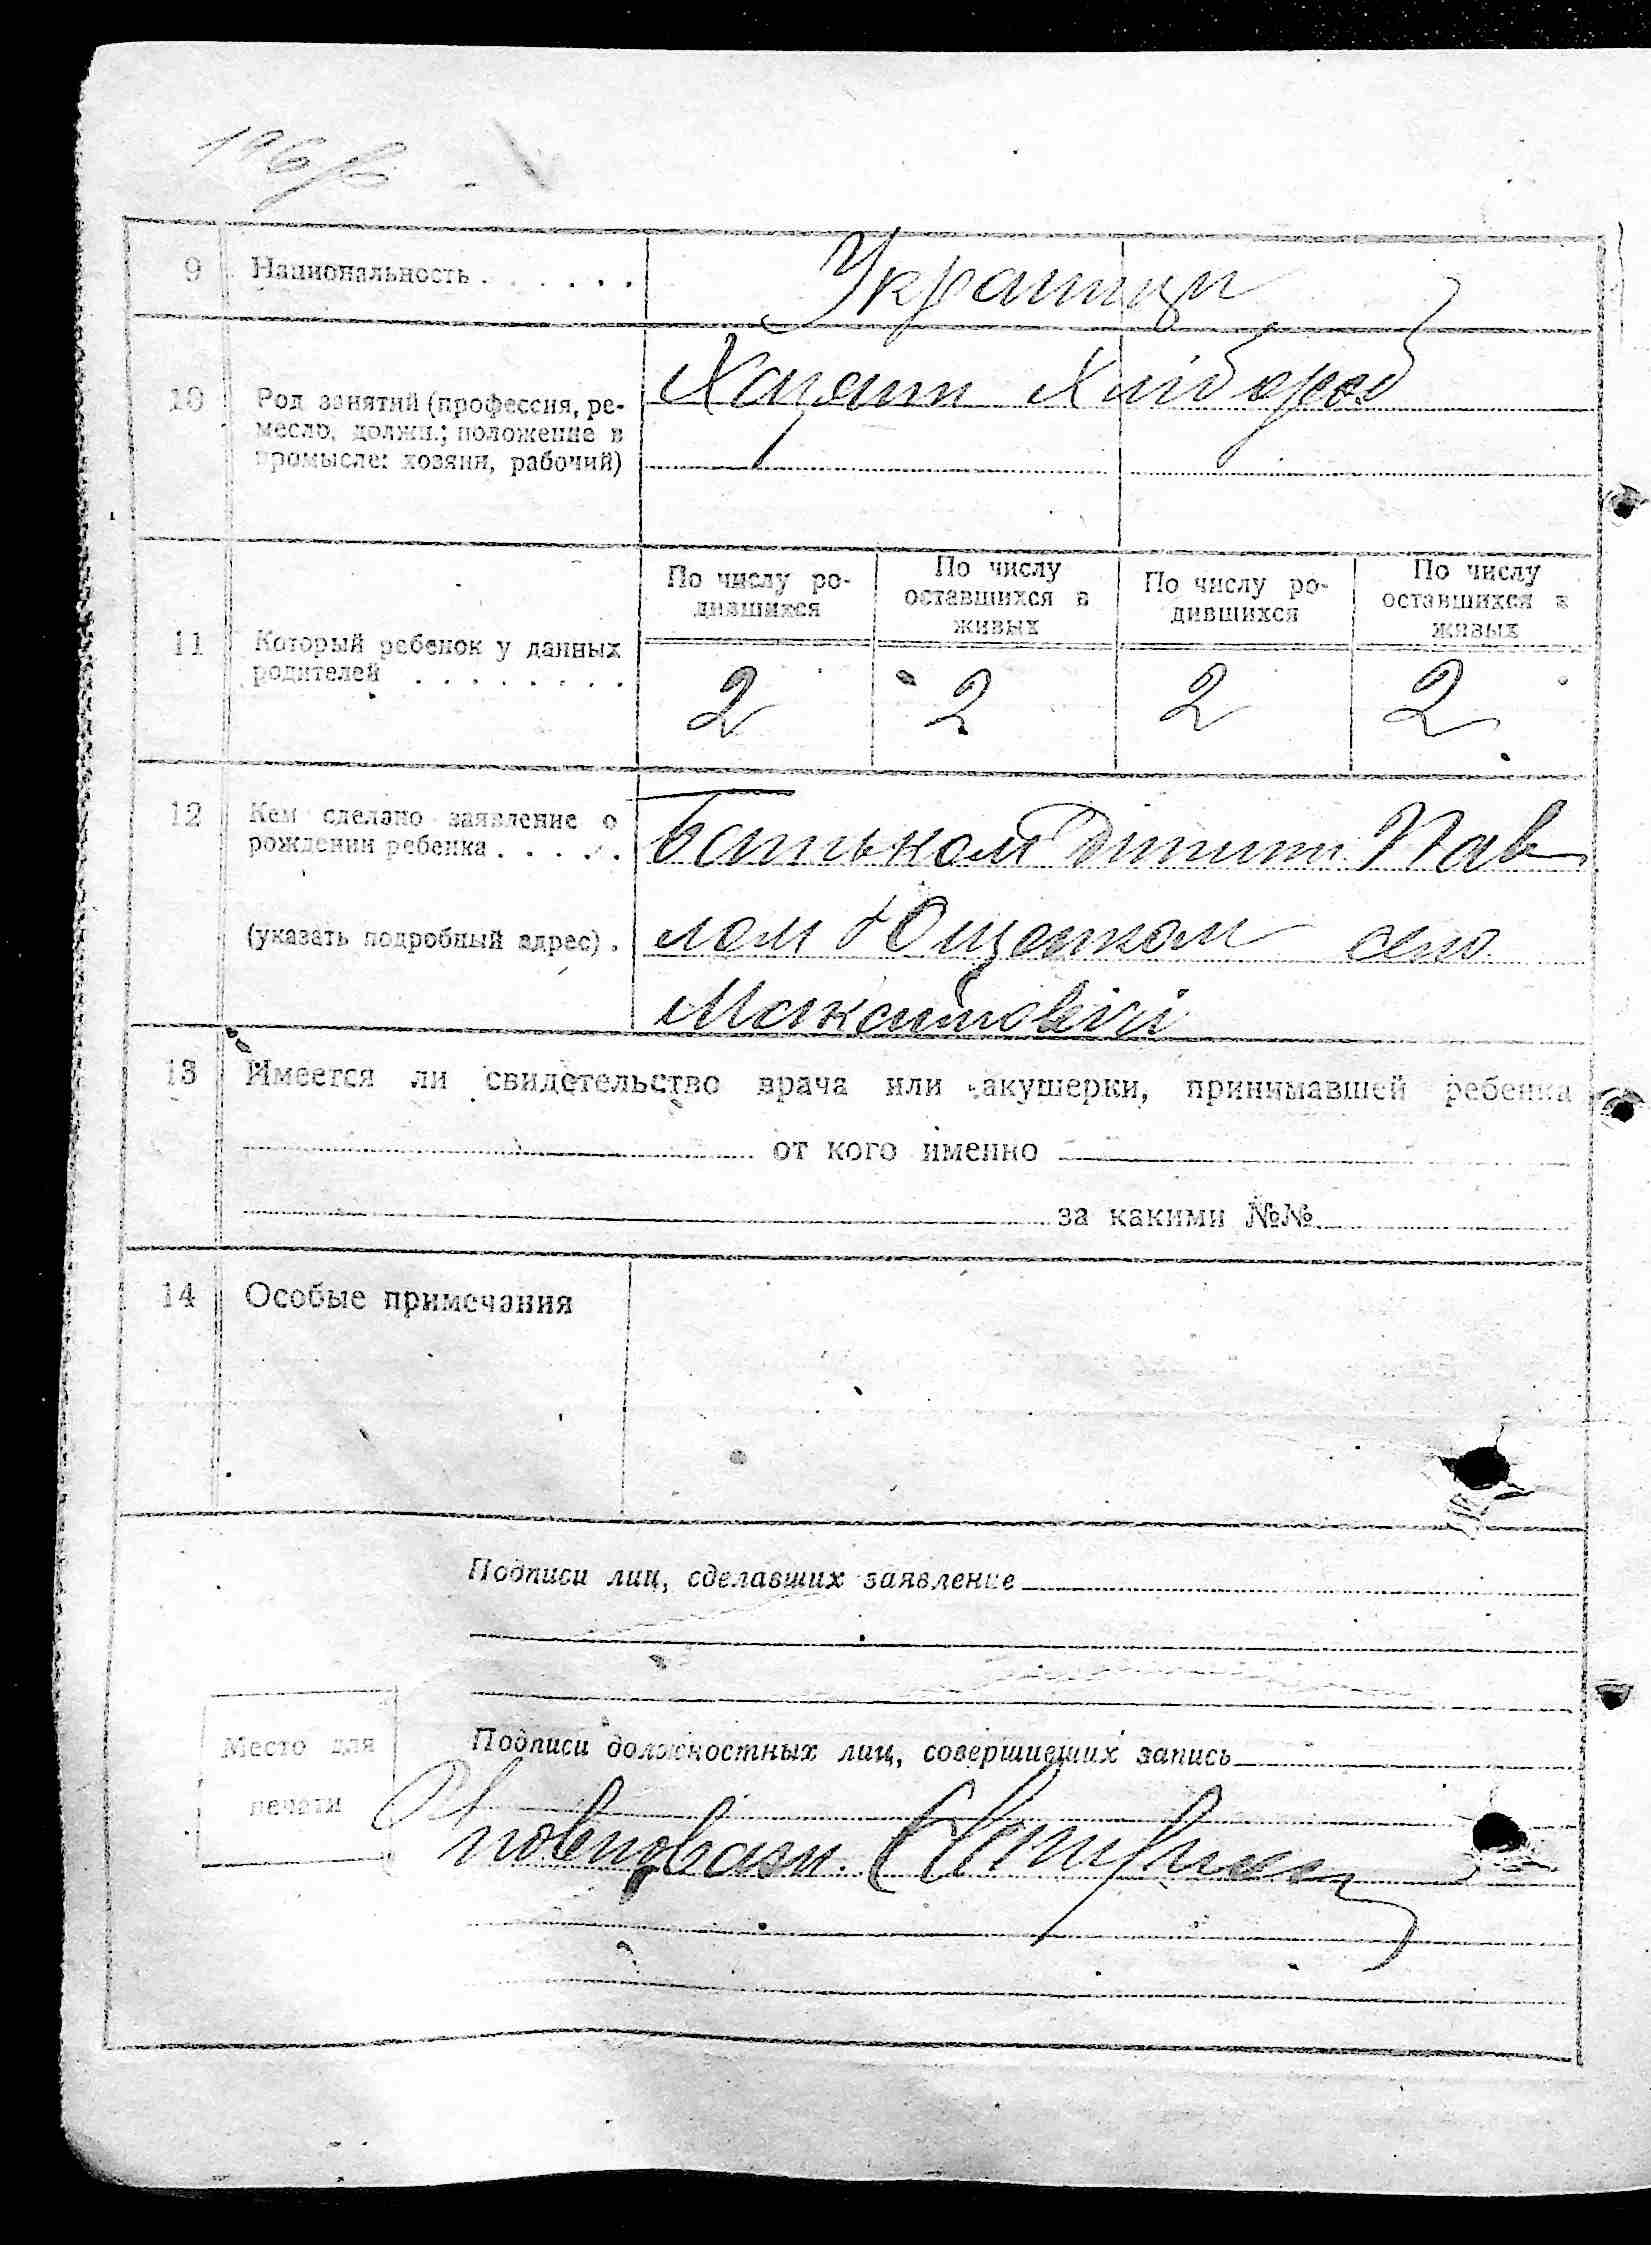 196/б
9 Национальность . . . . . . Українци
10 Род занятий (профессия, ре-
месло, должн.; положение в
промысле: хозяин, рабочий)
Хлібороб
По числу ро-
дившихся
По числу
оставшихся в
живых
По числу ро-
дившихся
По числу
оставшихся в
живых
11 Который ребенок у данных
родителей . . . . . . . .
2 2 2 2
12 Кем сделано заявление о
рождении ребенка . . . . .
(указать подробный адрес) .
Батьком дитини Пав
лом Ющенком село
Максимовічі
13 Имеется ли свидетельство врача или акушерки, принимавшей ребенка
от кого именно
за какими №№
14 Особые примечания
Подписи лиц, сделавших заявление
Подписи должностных лиц, совершивших запись
Место для
печати